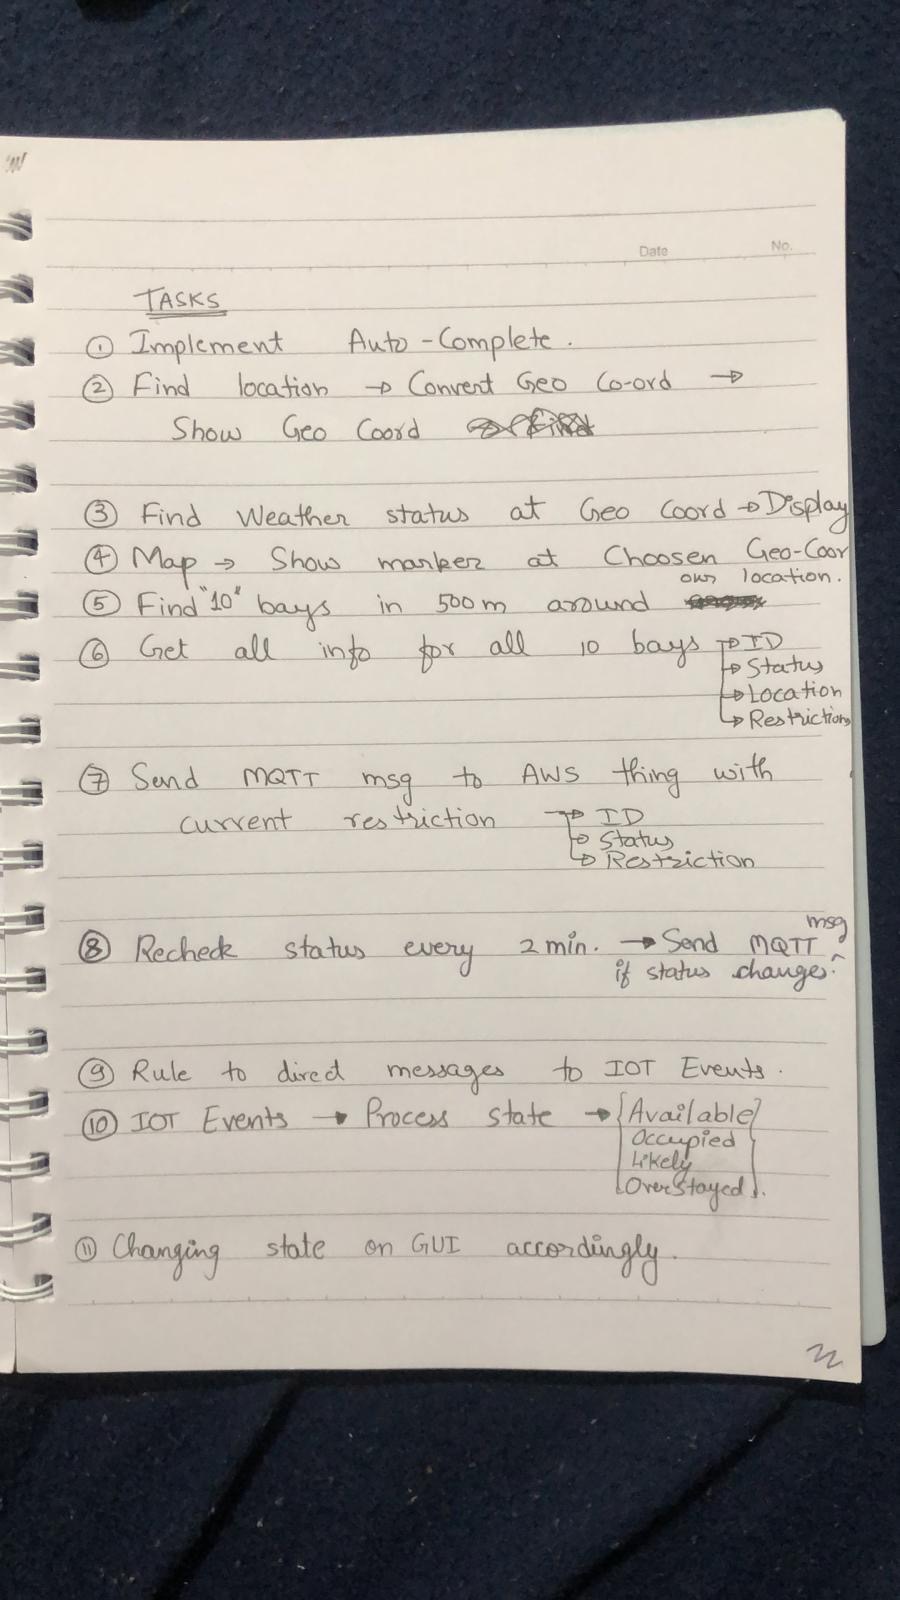 Date No.
TASKS
① Implement Auto-Complete.
② Find location → Convert Geo Co-ord →
Show Geo Coord
③ Find Weather status at Geo Coord → Display
④ Map → Show marker at Choosen Geo-Coor
⑤ Find "10" bays in 500m around our location.
⑥ Get all info for all 10 bays → ID
→ Status
→ Location
→ Restrictions
⑦ Send MQTT msg to AWS thing with
current restriction → ID
→ Status
→ Restriction
⑧ Recheck status every 2 min. → Send MQTT msg
if status changes.
⑨ Rule to direct messages to IOT Events.
⑩ IOT Events → Process state → {Available
Occupied
Likely
OverStayed}.
⑪ Changing state on GUI accordingly.